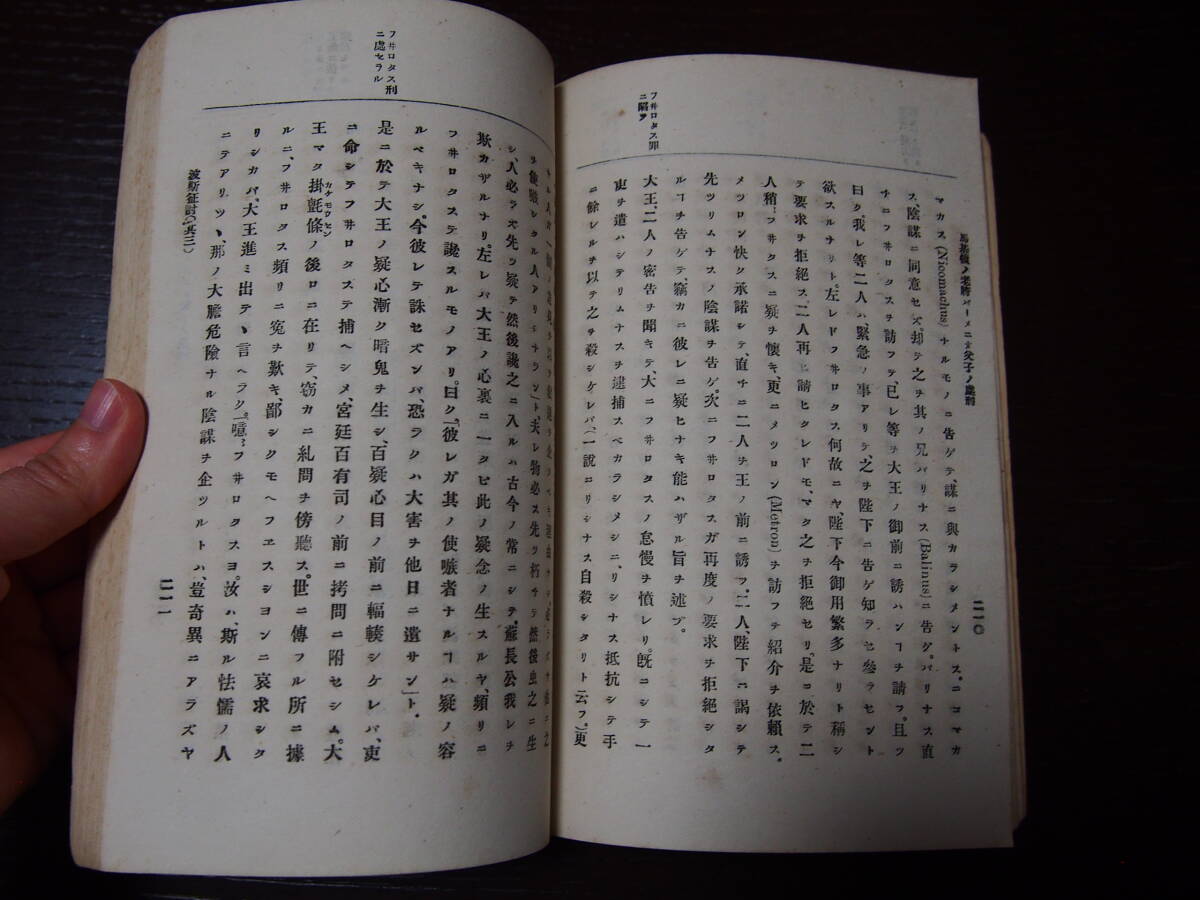 二一〇
フ井ロタス罪
ニ陷ヲ
マカス(Nicomachus)ナルモノニ告ゲテ、謀ニ與カラシメントス、ニコマカ
ス、陰謀ニ同意セズ、却テ之チ其ノ兄バリナス(Balinus)ニ告グ。バリナス直
チニフ井ロタスチ訪フテ、已レ等チ大王ノ御前ニ誘ハンヿチ請フ。且ツ
曰ク、我レ等二人ハ、緊急ノ事アリテ、之チ陛下ニ告ゲ知ラセ參ラセント
欲スルナリト。左レドフ井ロタス何故ニヤ、陛下今御用繁多ナリト稱シ
テ要求チ拒絶ス。二人再ヒ請ヒタレドモ、マタ之チ拒絶セリ。是ニ於テ二
人稍〻フ井タスニ疑チ懷キ、更ニメツロン(Metron)チ訪フテ紹介チ依賴ス。
メツロン快ク承諾シテ、直チニ二人チ王ノ前ニ誘フ。二人、陛下ニ謁シテ
先ツリムナスノ陰謀チ告ゲ、次ニフ井ロタスガ再度ノ要求チ拒絶シタ
ルヿチ告ゲテ、竊カニ彼レニ疑ヒナキ能ハザル旨チ述ブ。
大王、二人ノ密告チ聞キテ、大ニフ井ロタスノ怠慢チ憤レリ。既ニシテ一
更チ遣ハシテリムナスチ逮捕スベカラシメシニ、リシナス抵抗シテ手
ニ餘レルチ以テ之チ殺シケレバ(一說ニリシナス自殺シタリト云フ。)更
フ井ロタス刑
ニ處セラル
チ使嗾シタル人アリシナラン」ト、夫レ物必ス先ツ朽チテ然後虫之ニ生
シ、人必ラズ先ツ疑テ然後讒之ニ入ルハ古今ノ常ニシテ、蘇長公我レチ
欺カザルナリ。左レバ大王ノ心裏ニ一タビ此ノ疑念ノ生スルヤ、頻リニ
フ井ロタスチ讒スルモノアリ。曰ク、「彼レガ其ノ使嗾者ナルヿハ疑ノ容
ルベキナシ。今彼レチ誅セズンバ、恐ラクハ大害チ他日ニ遺サン」ト。
是ニ於テ大王ノ疑心漸ク暗鬼チ生シ、百疑心目ノ前ニ輻輳シケレバ、更
ニ命シテフ井ロタスチ捕ヘシメ、宮廷百有司ノ前ニ拷問ニ附セシム。大
王マタ掛氈條カケモウセンノ後ロニ在リテ竊カニ糺問チ傍聽ス。世ニ傳フル所ニ據
ルニ、フ井ロタス頻リニ寃チ歎キ、鄙シクモヘフエスシヨンニ哀求シタ
リシカバ、大王進ミ出テヽ言ヘラク「噫〻フ井ロタスヨ。汝ハ、斯ル怯懦ノ人
ニテアリツヽ、那ノ大膽危險ナル陰謀チ企ツルトハ、豈奇異ニアラズヤ
波斯征討(其三)
二一一